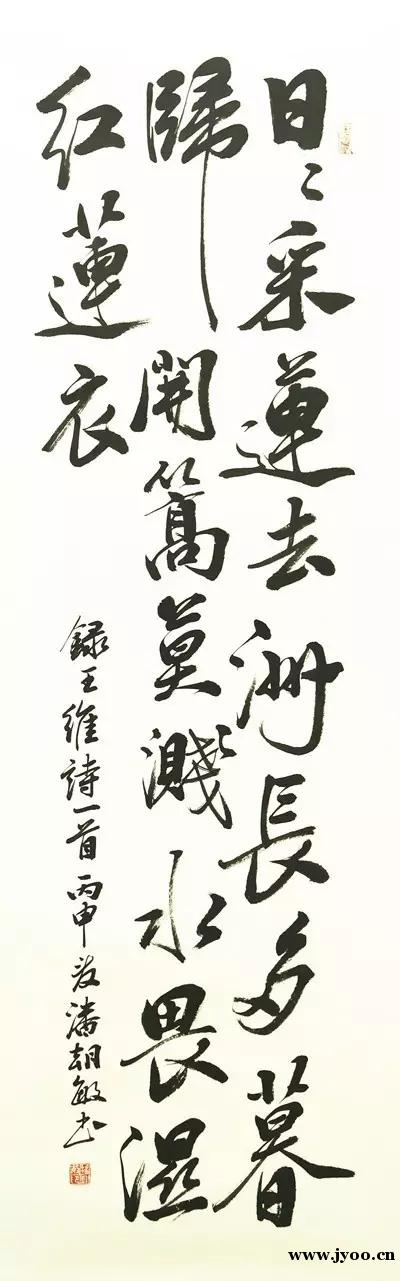 日〻采蓮去洲長多暮
歸開篙莫濺水畏濕
紅蓮衣
録王維詩一首丙申潘朝敏书
www.jyoo.cn